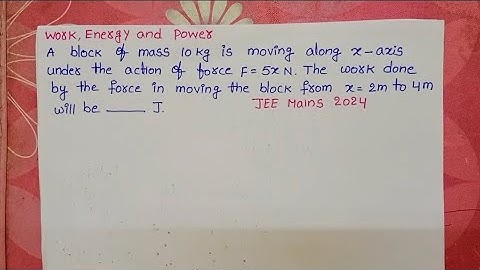 Work, Energy and Power
A block of mass 10 kg is moving along x-axis
under the action of force F = 5x N. The work done
by the force in moving the block from x = 2m to 4m
will be ____ J. JEE Mains 2024